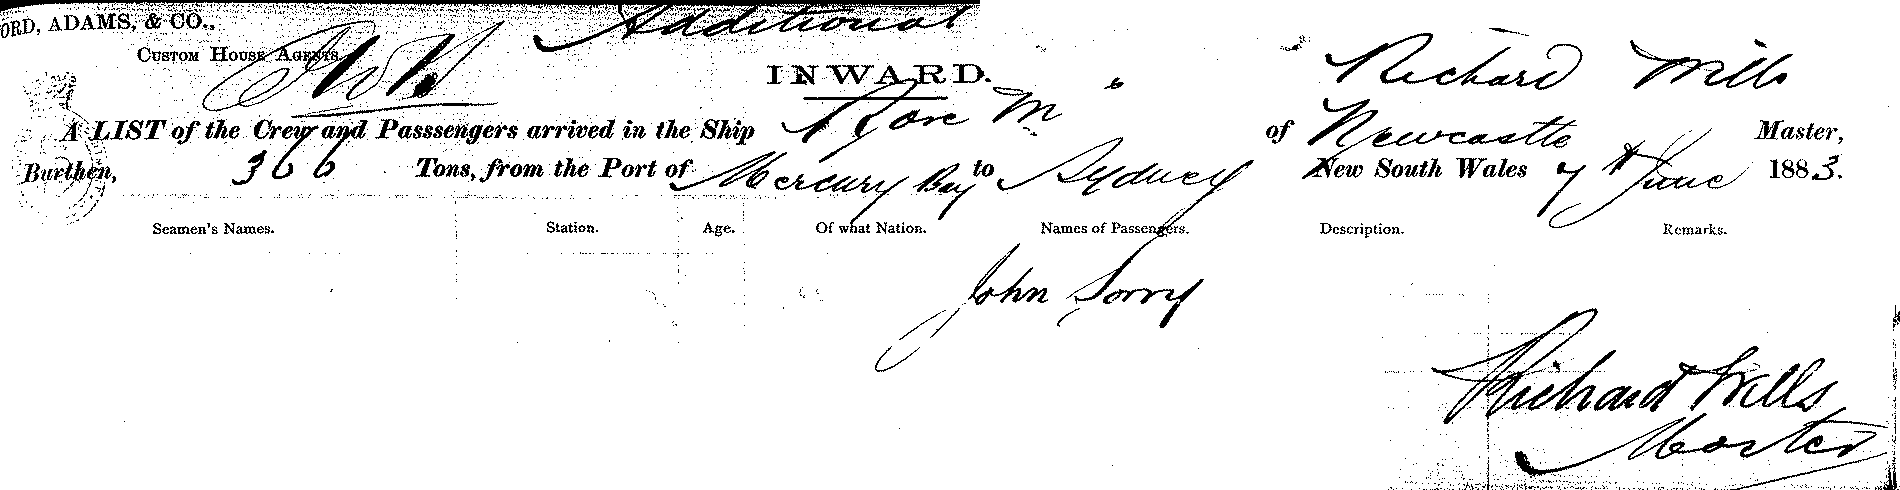 ORD, ADAMS, & CO., Additional
CUSTOM HOUSE AGENTS
INWARD.
Richard Wills
A LIST of the Crew and Passsengers arrived in the Ship Rose M of Newcastle Master,
Burthen, 366 Tons, from the Port of Mercury Bay to Sydney New South Wales 7th June 1883.
Seamen's Names. Station. Age. Of what Nation. Names of Passengers. Description. Remarks.
John Sorry
Richard Wills
Master